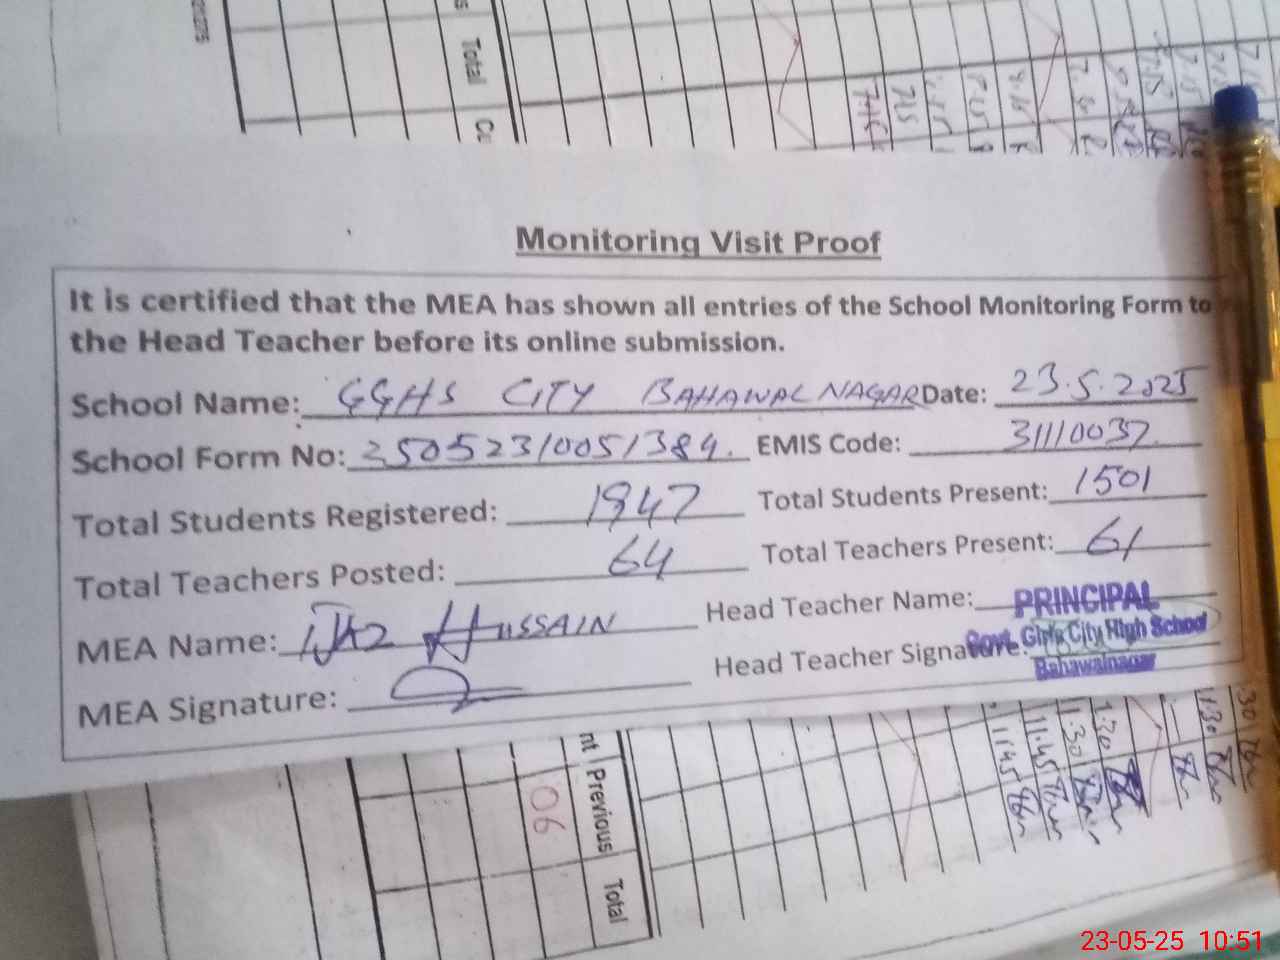 Total
Monitoring Visit Proof
It is certified that the MEA has shown all entries of the School Monitoring Form to
the Head Teacher before its online submission.
School Name: GGHS CITY BAHAWALNAGAR Date: 23.5.2025
School Form No: 25052310051384. EMIS Code: 31110037
Total Students Registered: 1947 Total Students Present: 1501
Total Teachers Posted: 64 Total Teachers Present: 61
MEA Name: Ijaz Hussain Head Teacher Name: PRINCIPAL
MEA Signature: Head Teacher Signature: Govt. Girls City High School
Bahawalnagar
Previous
Total
06
1.30
1.30
11.45
11.45
1.30
23-05-25 10:51